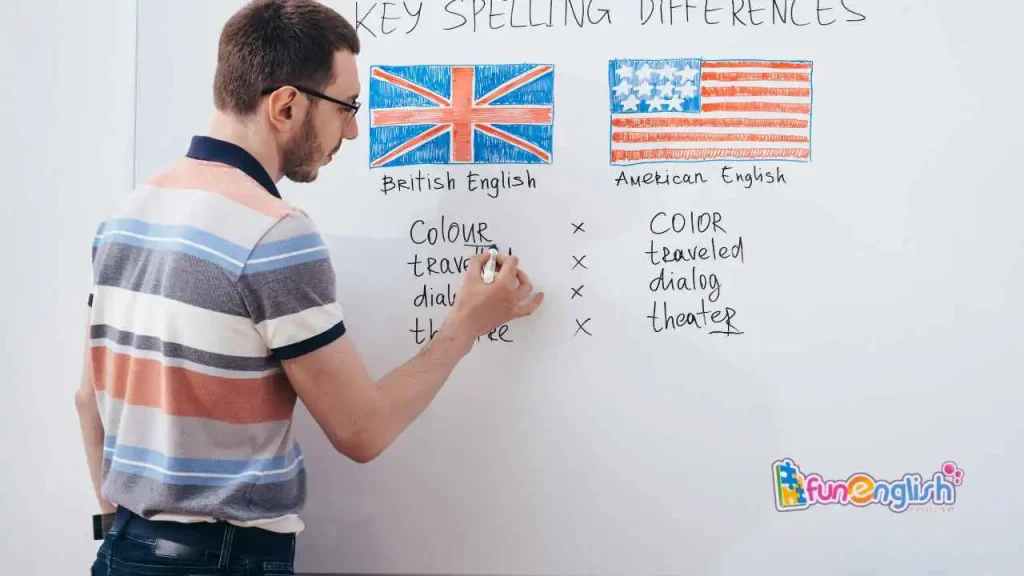 KEY SPELLING DIFFERENCES
British English
American English
Colour x COLOR
x traveled
x dialog
x theater
funenglish